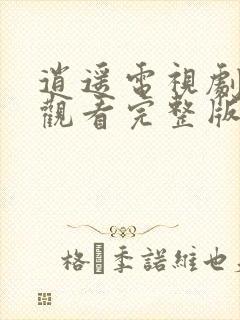 逍遥電視劇
觀看完整版
格�季諾維也